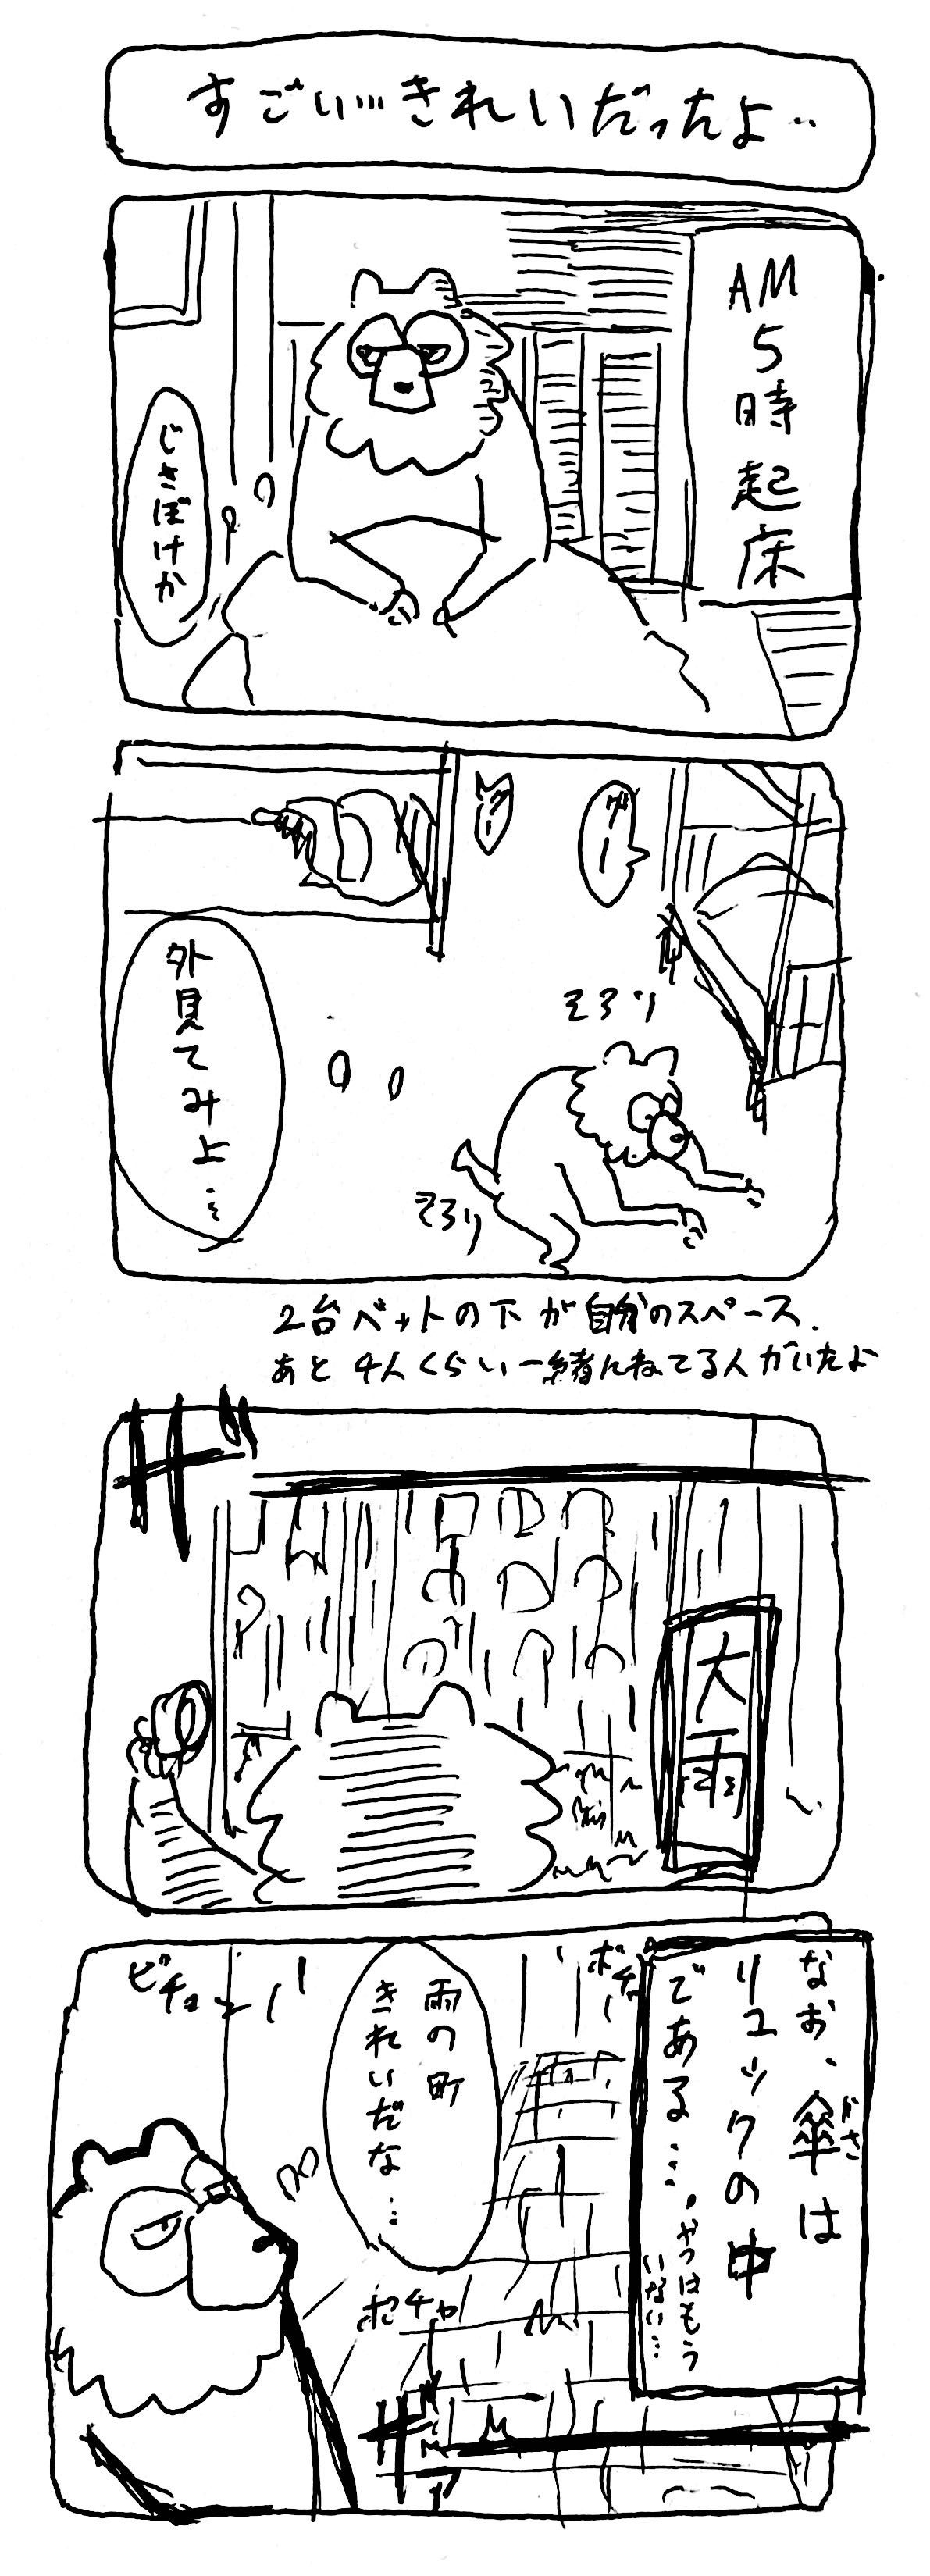 すごい…きれいだったよ…
AM5時起床
じさぼけか
グー
グー
そろり
外見てみよ…
そろり
2台ベットの下が自分のスペース.
あと4人くらい一緒にねてる人がいたよ
ザ
大雨
なお、傘は
かさ
リュックの中
である…
やつはもう
いない…
ポチャ
雨の町
きれいだな…
ピチョン
ポチャ
ザー